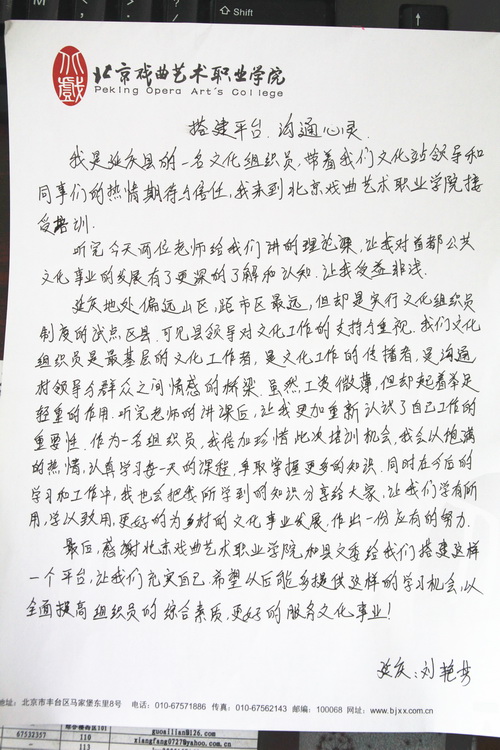 Shift
北京戏曲艺术职业学院
Peking Opera Art's College
搭建平台 沟通心灵
我是延庆县的一名文化组织员,带着我们文化站领导和
同事们的热情期待与信任,我来到北京戏曲艺术职业学院接
受培训.
听完今天两位老师给我们讲的理论课,让我对首都公共
文化事业的发展有了更深的了解和认知.让我受益非浅.
延庆地处偏远山区,距市区最远,但却是实行文化组织员
制度的试点区县.可见县领导对文化工作的支持与重视.我们文化
组织员是最基层的文化工作者,是文化工作的传播者,是沟通
村领导与群众之间情感的桥梁.虽然工资微薄,但却起着举足
轻重的作用.听完老师的讲课后,让我更加重新认识了自己工作的
重要性.作为一名组织员,我倍加珍惜此次培训机会,我会以饱满
的热情,认真学习每一天的课程,争取掌握更多的知识.同时在今后的
学习和工作中,我也会把我所学到的知识分享给大家,让我们学有所
用,学以致用,更好的为乡村的文化事业发展,作出一份应有的努力.
最后,感谢北京戏曲艺术职业学院和县文委给我们搭建这样
一个平台,让我们充实自己.希望以后能多提供这样的学习机会,以
全面提高组织员的综合素质,更好的服务文化事业!
延庆:刘艳
地址:北京市丰台区马家堡东里8号 电话:010-67571886 传真:010-67562143 邮编:100068 网址:www.bjxx.com.cn
67532357 110 guoailian@126.com
113 xiangfang0727@yahoo.com.cn